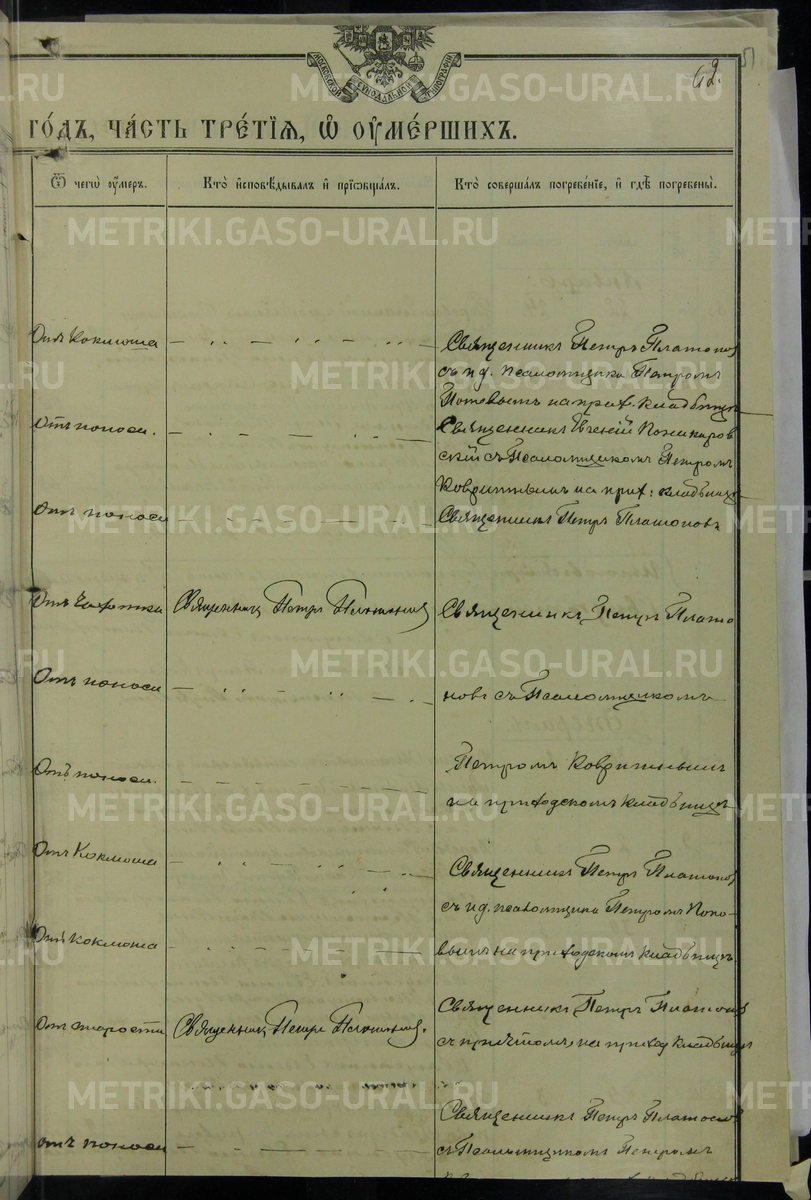 МОСКОВСКОЙ СѴНОДАЛЬНОЙ ТИПОГРАФІИ
51
62.
ГО́ДЪ, ЧА́СТЬ ТРЕ́ТІѦ, Ѡ҆ ОУ҆МЕ́РШИХЪ.
Ѿ чегѡ̀ оу҆́меръ.
Кто̀ и҆сповѣ́дывалъ и҆ прїѡбща́лъ.
Кто̀ соверша́лъ погребе́нїе, и҆ гдѣ̀ погребены̀.
Отъ Коклюша
Священникъ Петръ Платоновъ
съ и д. псаломщика Петромъ
Поповымъ на прих. кладбищѣ
Отъ поноса.
Священникъ Евгеній
скій съ Псаломщикомъ Петромъ
Ковригинымъ на прих: кладбищѣ
Отъ поноса
Священникъ Петръ Платоновъ
Отъ чахотки
Священникъ Петръ Платоновъ
Священникъ Петръ Плато
Отъ поноса
новъ съ Псаломщикомъ
Отъ поноса.
Петромъ Ковригинымъ
на приходскомъ кладбищѣ
Отъ Коклюша
Священникъ Петръ Платоновъ
съ и д. псаломщика Петромъ Попо-
Отъ коклюша
вымъ на приходскомъ кладбищѣ
Отъ старости
Священникъ Петръ Платоновъ.
Священникъ Петръ Платоновъ
съ причтомъ, на приход кладбищѣ
Священникъ Петръ Платоновъ
отъ поноса
съ Псаломщикомъ Петромъ
METRIKI.GASO-URAL.RU